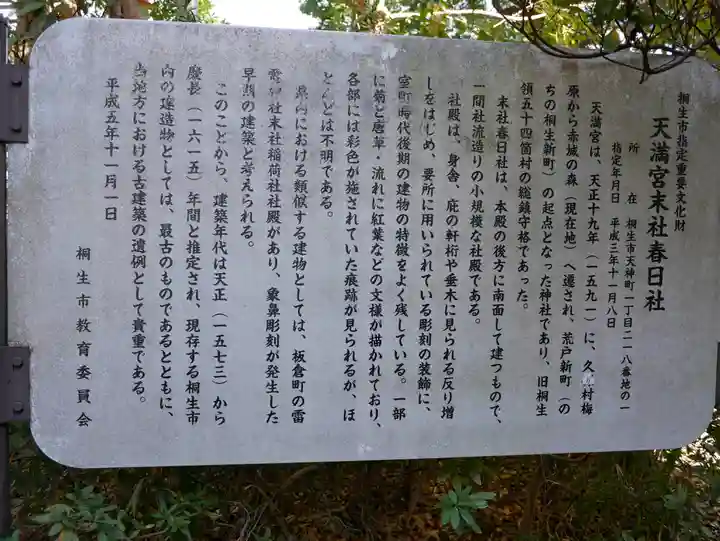 桐生市指定重要文化財
天満宮末社春日社
所在 桐生市天神町一丁目二一八番地の一
指定年月日 平成三年十一月八日
天満宮は、天正十九年(一五九一)に、久 村梅
原から赤城の森(現在地)へ遷され、荒戸新町(の
ちの桐生新町)の起点となった神社であり、旧桐生
領五十四箇村の総鎮守格であった。
末社春日社は、本殿の後方に南面して建つもので、
一間社流造りの小規模な社殿である。
社殿は、身舎、庇の軒桁や垂木に見られる反り増
しをはじめ、要所に用いられている彫刻の装飾に、
室町時代後期の建物の特徴をよく残している。一部
に菊と唐草・流れに紅葉などの文様が描かれており、
各部には彩色が施されていた痕跡が見られるが、ほ
とんどは不明である。
県内における類似する建物としては、板倉町の雷
電神社末社稲荷社社殿があり、象鼻彫刻が発生した
早期の建築と考えられる。
このことから、建築年代は天正(一五七三)から
慶長(一六一五)年間と推定され、現存する桐生市
内の建造物としては、最古のものであるとともに、
当地方における古建築の遺例として貴重である。
平成五年十一月一日
桐生市教育委員会